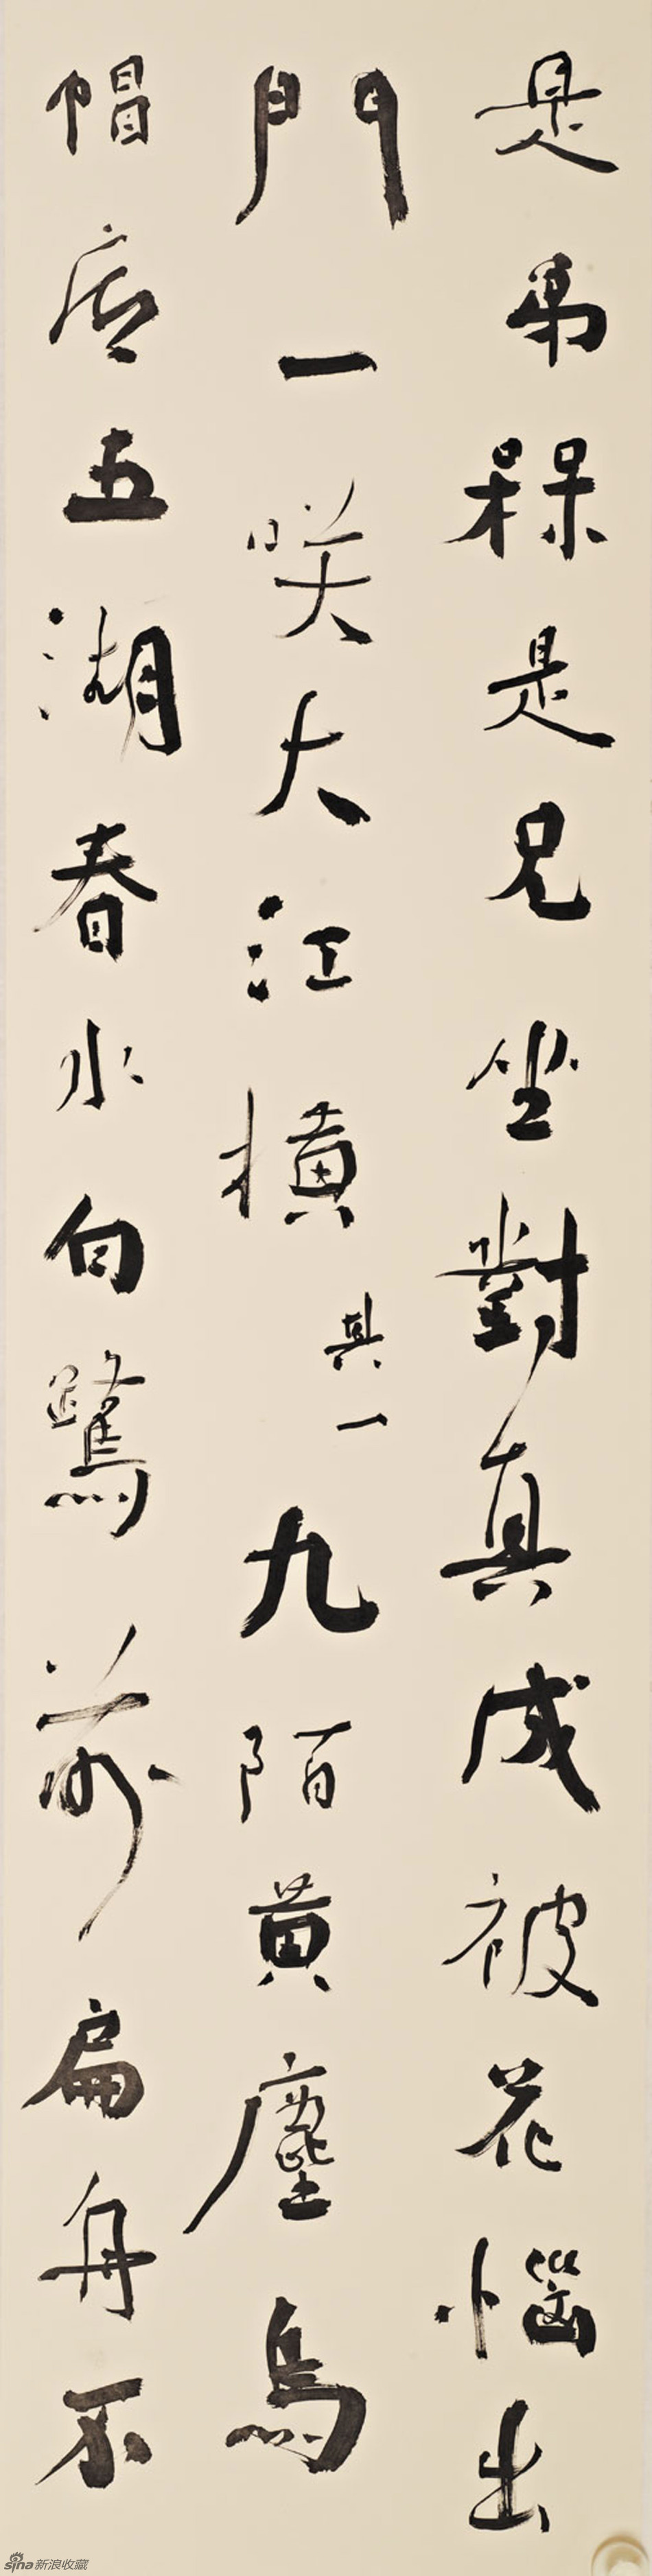 是弟槑是兄坐對真成被花惱出
門一咲大江橫其一九陌黄塵烏
帽底五湖春水白鷺前扁舟不
sina新浪收藏